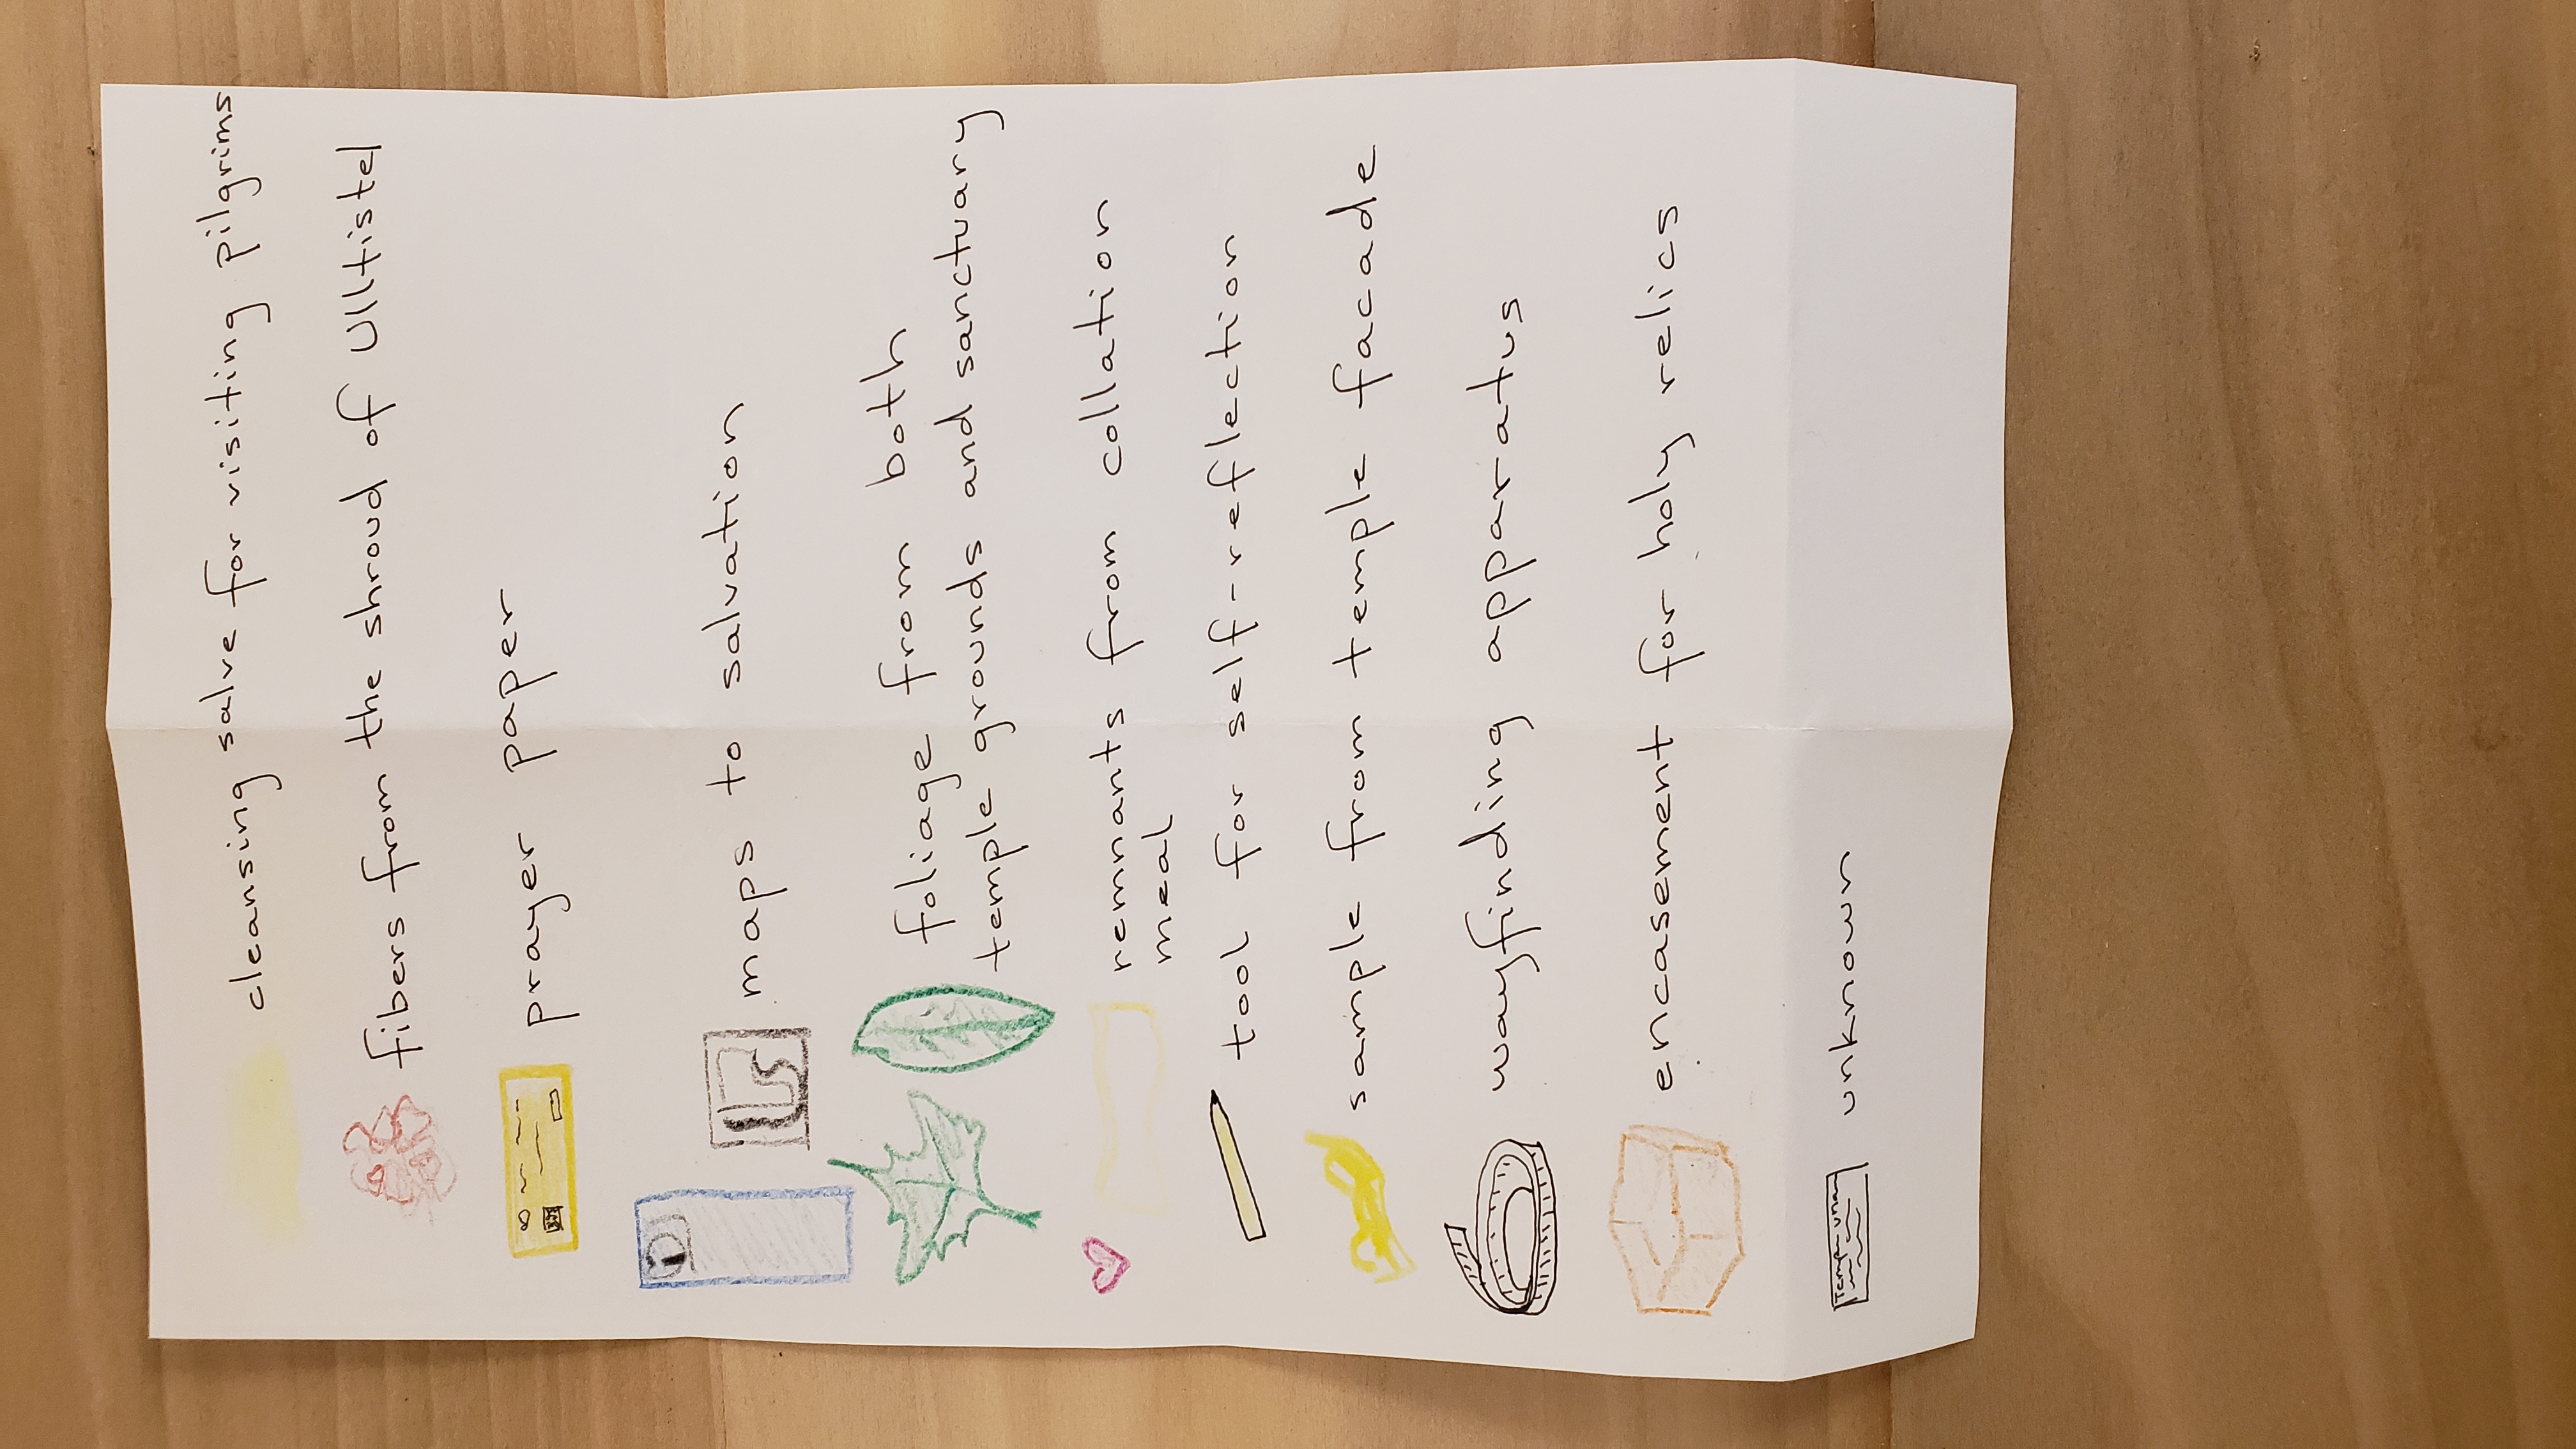 cleansing salve for visiting pilgrims
fibers from the shroud of Ulltistel
prayer paper
maps to salvation
foliage from both
temple grounds and sanctuary
remnants from collation
meal
tool for self-reflection
sample from temple facade
wayfinding apparatus
encasement for holy relics
unknown